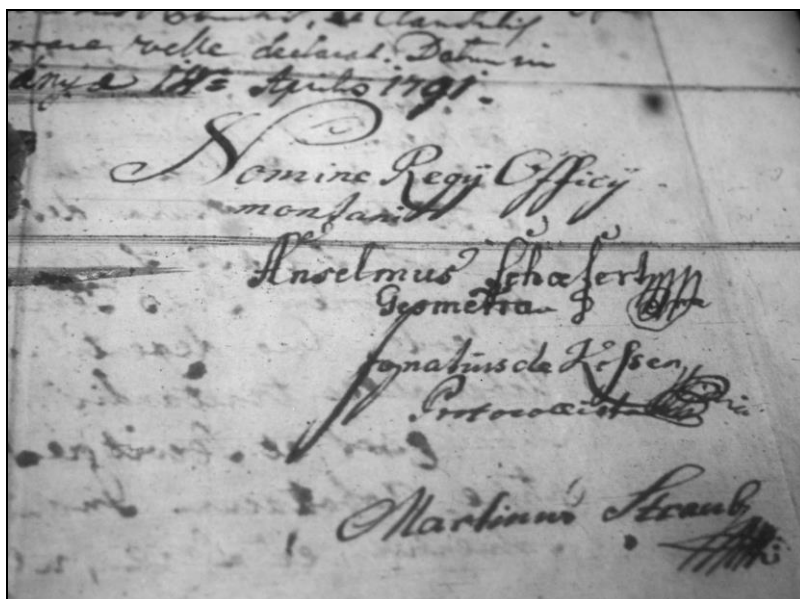 et Clandestij
velle declarat. Datum in
Aprilis 1791.
Nomine Regij Officij
montani
Anselmus Schæfert
Geometra
Ignatius de Kessen
Protocollista
Martinus Straub